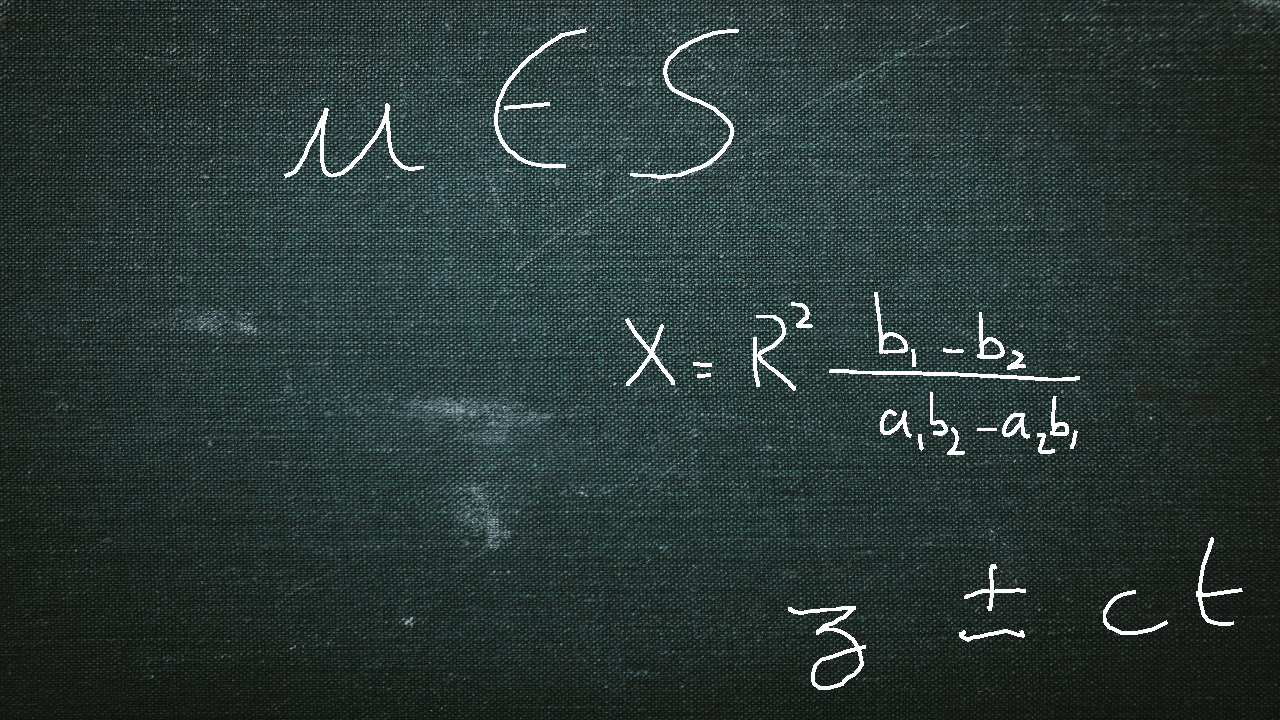 u ∈ S
X = R² (b₁ - b₂) / (a₁b₂ - a₂b₁)
z ± ct